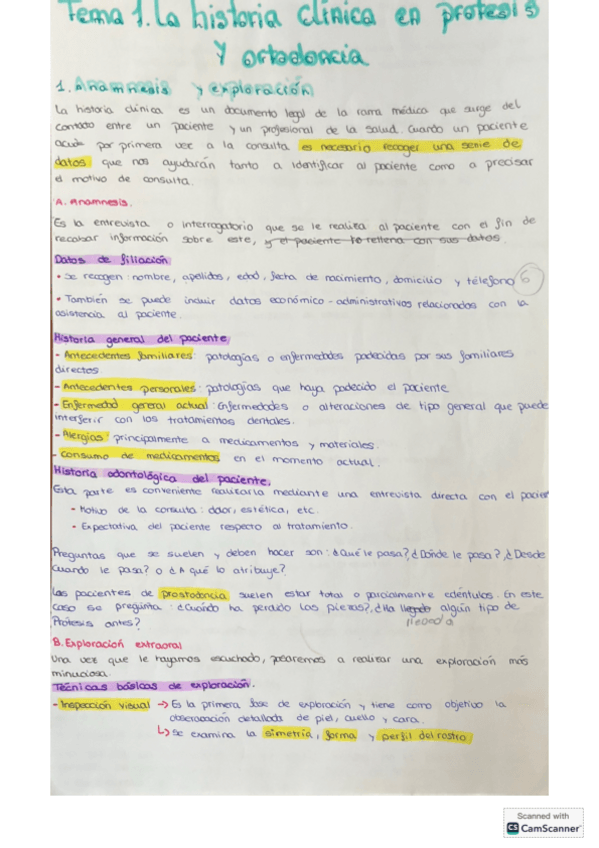 Tema 1. La historia clínica en protesis
y ortodoncia
1. Anamnesis y exploración
La historia clínica es un documento legal de la rama médica que surge del
contacto entre un paciente y un profesional de la salud. Cuando un paciente
acude por primera vez a la consulta es necesario recoger una serie de
datos que nos ayudarán tanto a identificar al paciente como a precisar
el motivo de consulta.
A. Anamnesis.
Es la entrevista o interrogatorio que se le realiza al paciente con el fin de
recabar información sobre este, y el paciente lo rellena con sus datos.
Datos de filiación
• Se recogen: nombre, apellidos, edad, fecha de nacimiento, domicilio y teléfono 6
• También se puede incluir datos económico-administrativos relacionados con la
asistencia al paciente.
Historia general del paciente
- Antecedentes familiares: patologías o enfermedades padecidas por sus familiares
directos.
- Antecedentes personales: patologías que haya padecido el paciente
- Enfermedad general actual: Enfermedades o alteraciones de tipo general que puede
interferir con los tratamientos dentales.
- Alergias: principalmente a medicamentos y materiales.
- Consumo de medicamentos en el momento actual.
Historia odontológica del paciente.
Esta parte es conveniente realizarla mediante una entrevista directa con el pacien
- Motivo de la consulta: dolor, estética, etc.
- Expectativa del paciente respecto al tratamiento.
Preguntas que se suelen y deben hacer son: ¿Qué le pasa?, ¿Dónde le pasa?, ¿Desde
cuando le pasa? o ¿A qué lo atribuye?
Los pacientes de prostodoncia suelen estar total o parcialmente edéntulos. En este
caso se pregunta: ¿Cuándo ha perdido las piezas?, ¿Ha llegado algún tipo de
Protesis antes? llevado
B. Exploración extraoral
Una vez que le hayamos escuchado, pasaremos a realizar una exploración más
minuciosa.
Técnicas básicas de exploración.
- Inspección visual → Es la primera fase de exploración y tiene como objetivo la
observación detallada de piel, cuello y cara.
↳ Se examina la simetria, forma y perfil del rostro
Scanned with
CS CamScanner